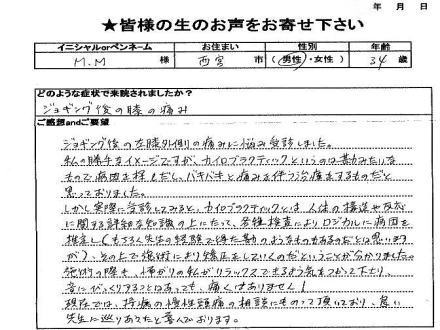 年 月 日
★皆様の生のお声をお寄せ下さい
イニシャルorペンネーム お住まい 性別 年齢
M.M 様 西宮 市 (男性・女性) 34 歳
どのような症状で来院されましたか?
ジョギング後の膝の痛み
ご感想andご要望
ジョギング後の左膝外側の痛みに悩み受診しました。
私の勝手なイメージですが、カイロプラクティックというのは勘みたいな
もので病因を探しだし、バキバキと痛みを伴う治療をするものだと
思っておりました。
しかし実際に受診してみると、カイロプラクティックとは人体の構造や反応
に関する詳細な知識の上にたって、各種検査によりロジカルに病因を
推定し(もちろん先生の経験で得た勘のようなものもあるのだと思います
が)、その上で施術により矯正をしていくのだということが分かりました。
施術の際も、怖がりの私がリラックスできるよう気をつかって下さり、
音にびっくりすることはあっても、痛くはありません!
現在では、持病の慢性頭痛の相談にものって頂いており、良い
先生に巡りあえたと喜んでおります。